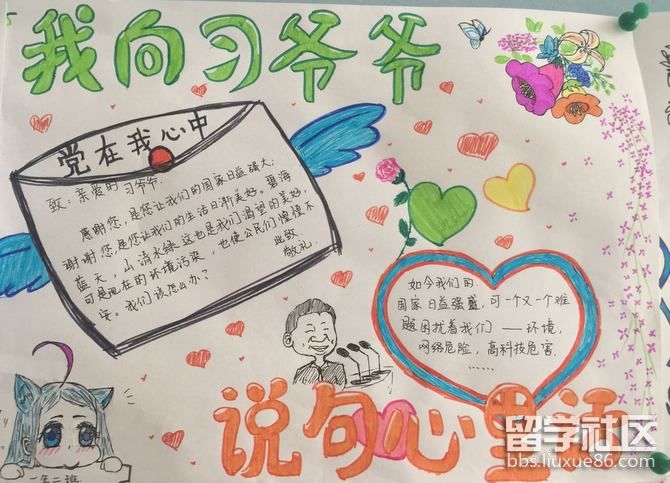 我向习爷爷
党在我心中
致：亲爱的习爷爷.
感谢您,是您让我们的国家日益强大.
谢谢您,是您让我们的生活日渐美好。碧海
蓝天，山清水绿.这也是我们渴望的美好,
可是现在的环境污染，也使公民们惶惶不
安。我们该怎么办？
此致.
敬礼.
如今我们的.
国家日益强盛,可一个又一个难
题困扰着我们——环境,
网络危险,高科技危害.
……
说句心里话
一年二班
留学社区
bbs.liuxue86.com